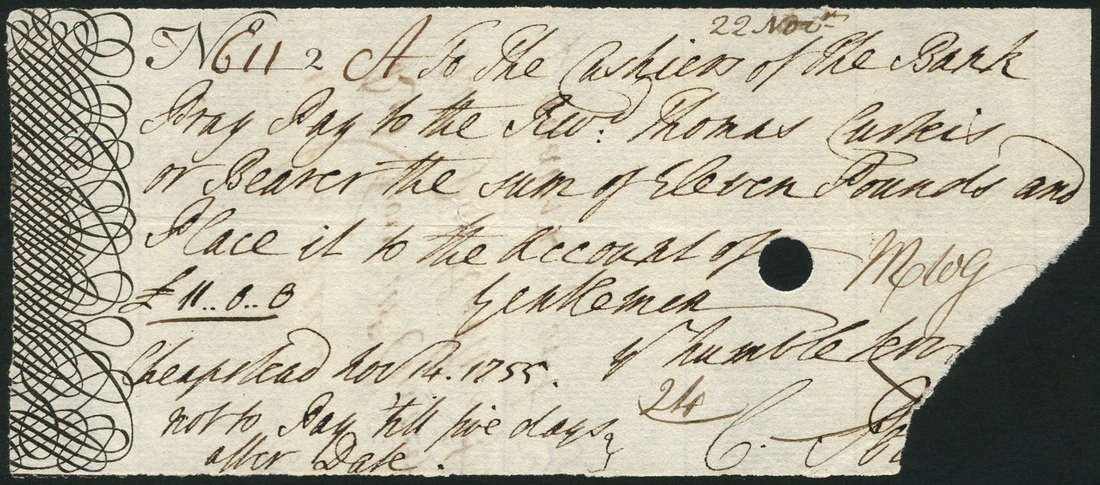 22 Novr
NE11 2 A To The Cashiers of the Bank
Pray Pay to the Revd. Thomas Curtis
or Bearer the sum of Eleven Pounds and
Place it to the Account of
£11..0..0 Gentlemen
yr humble
Nov 14. 1755.
24
not to Pay till five days
after Date.
C.